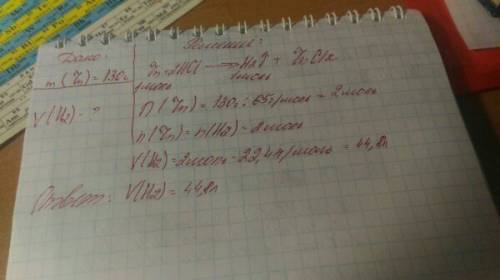 Дано:
m(Zn) = 130г
V(H2) - ?
Решение:
Zn + 2HCl → H2↑ + ZnCl2
1моль 1моль
n(Zn) = 130г : 65г/моль = 2моль
n(Zn) = n(H2) = 2моль
V(H2) = 2моль · 22,4л/моль = 44,8л
Ответ: V(H2) = 44,8л